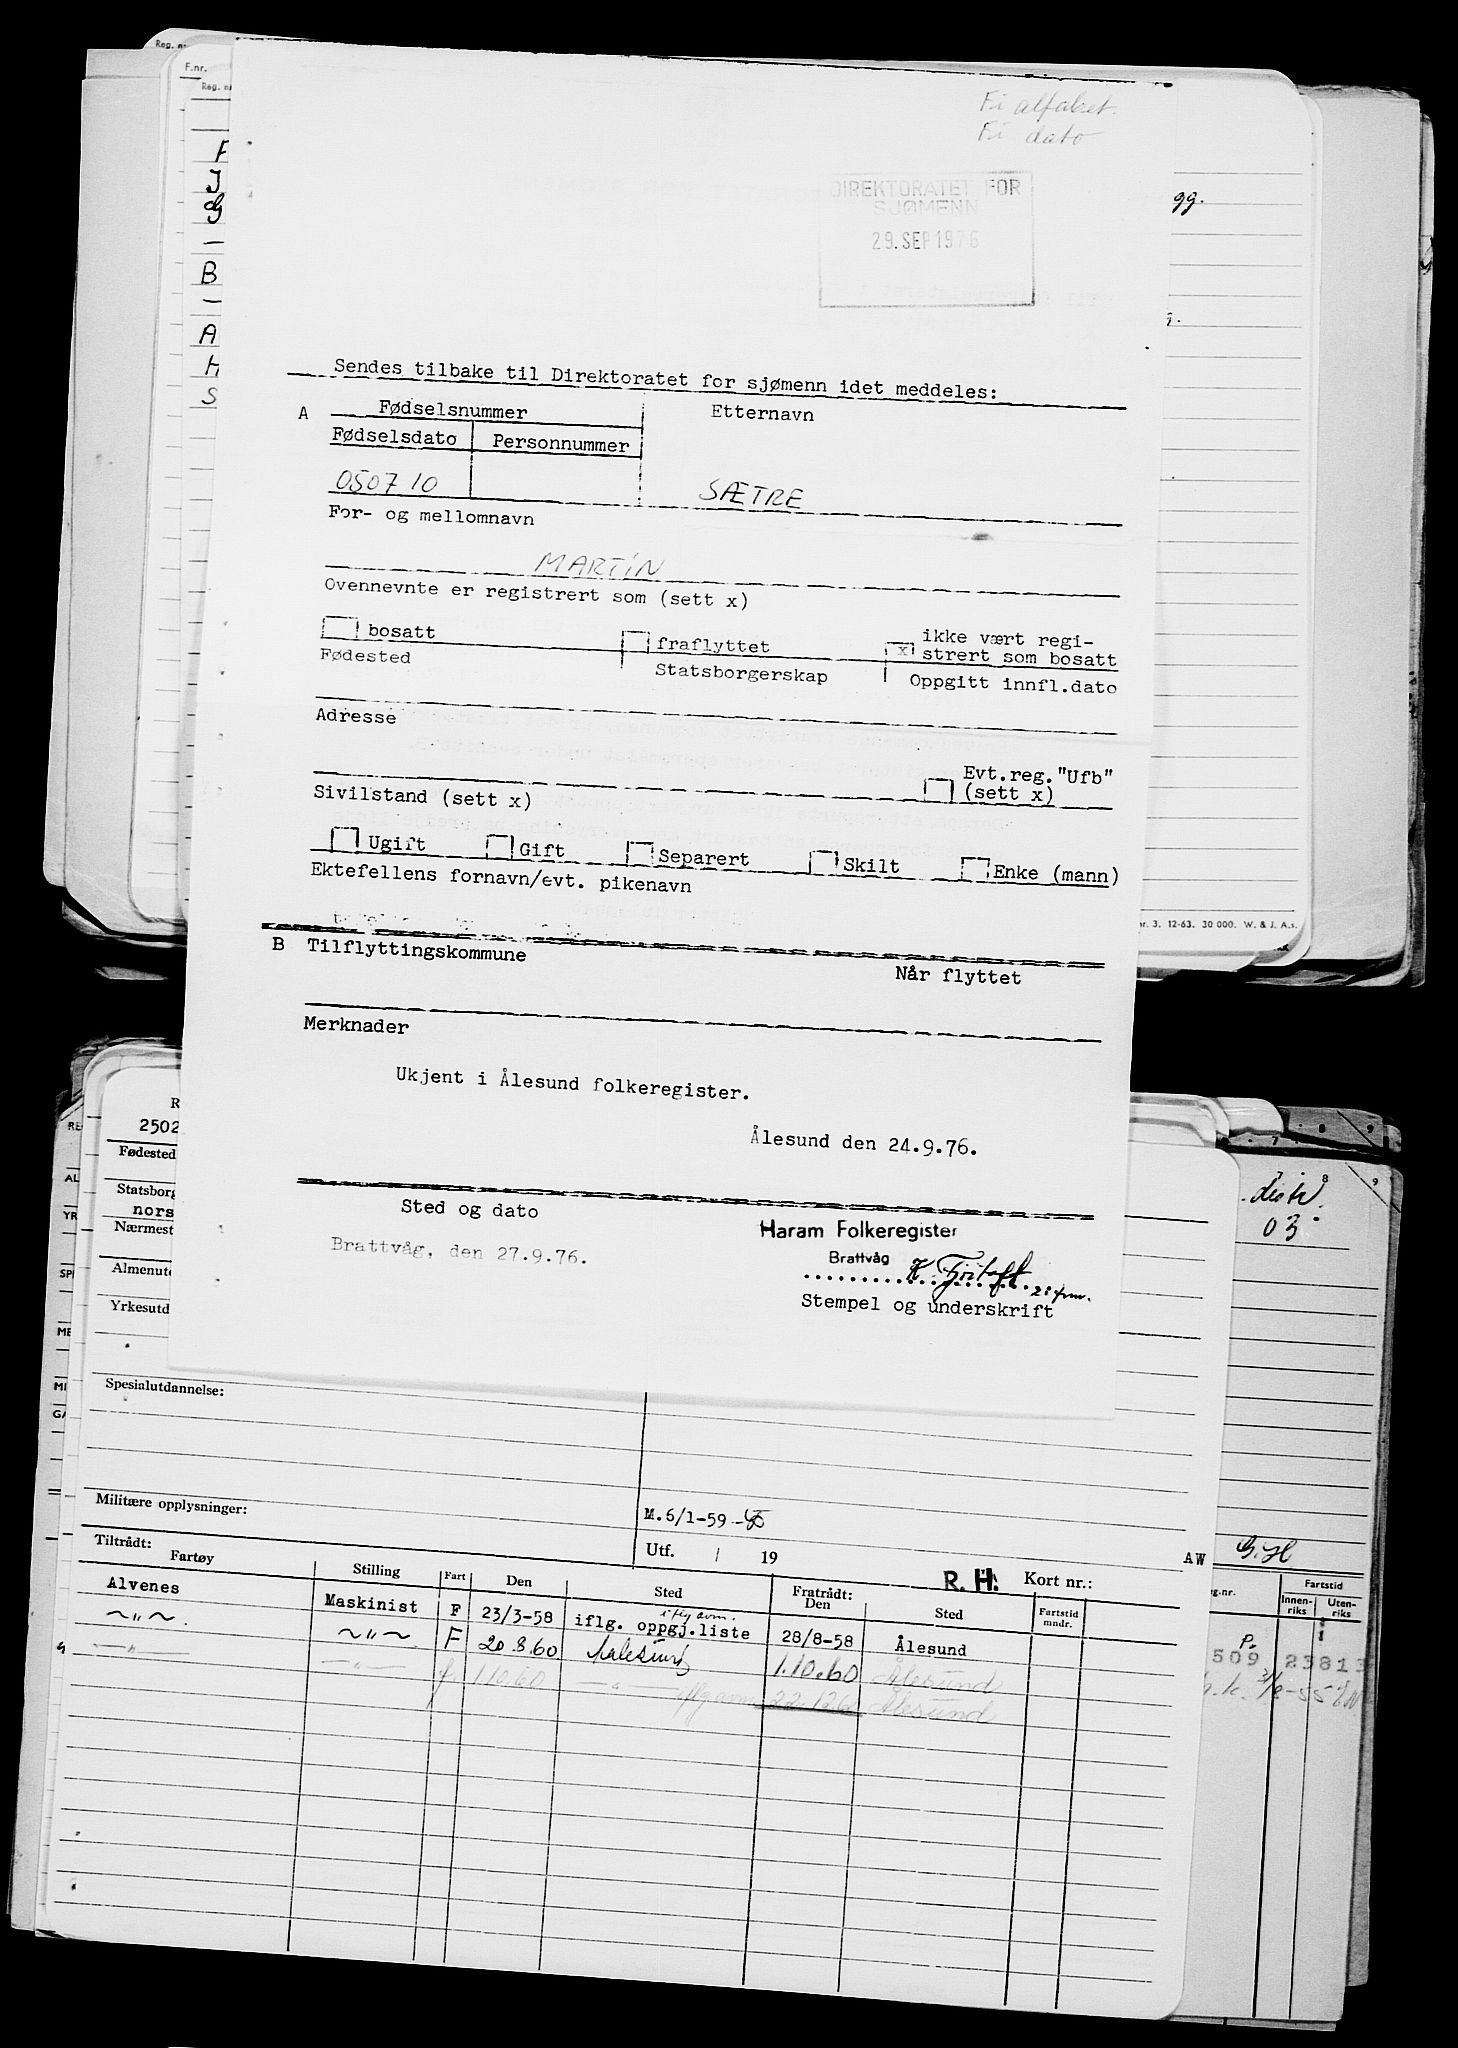 Reg. nr
F.nr.
Reg. nr
Fi alfabet.
Fi dato
DIREKTORATET FOR
SJØMENN
29. SEP 1976
gg.
B
A
H
S
Sendes tilbake til Direktoratet for sjømenn idet meddeles:
A Fødselsnummer Etternavn
Fødselsdato Personnummer
050710 SÆTRE
For- og mellomnavn
MARTIN
Ovennevnte er registrert som (sett x)
bosatt fraflyttet x ikke vært regi-
strert som bosatt
Fødested Statsborgerskap Oppgitt innfl.dato
Adresse
Evt.reg."Ufb"
(sett x)
Sivilstand (sett x)
Ugift Gift Separert Skilt Enke (mann)
Ektefellens fornavn/evt. pikenavn
nr. 3. 12-63. 30 000. W. & J. A.s.
B Tilflyttingskommune Når flyttet
Merknader
Ukjent i Ålesund folkeregister.
Ålesund den 24.9.76.
Sted og dato
Haram Folkeregister
Brattvåg
Brattvåg, den 27.9.76.
Stempel og underskrift
2502
Fødested
Statsborg
nors
Nærmest
Almenutd
Yrkesutd
distr.
03
8 9
Spesialutdannelse:
Militære opplysninger:
M.6/1-59
Utf. / 19
AW
G.H
Tiltrådt:
Fartøy Stilling Fart Den Sted Fratrådt:
Den Sted Fartstid
mndr.
R.H. Kort nr.:
Fartstid
Innen-
riks Uten-
riks
g.nr.
Alvenes Maskinist F 23/3-58 iflg. oppgj.liste 28/8-58 Ålesund
~"~ ~"~ F 20.8.60 Aalesund 1.10.60 Ålesund
—"— —"— f. 1.10.60 —"— Ålesund
509 23813